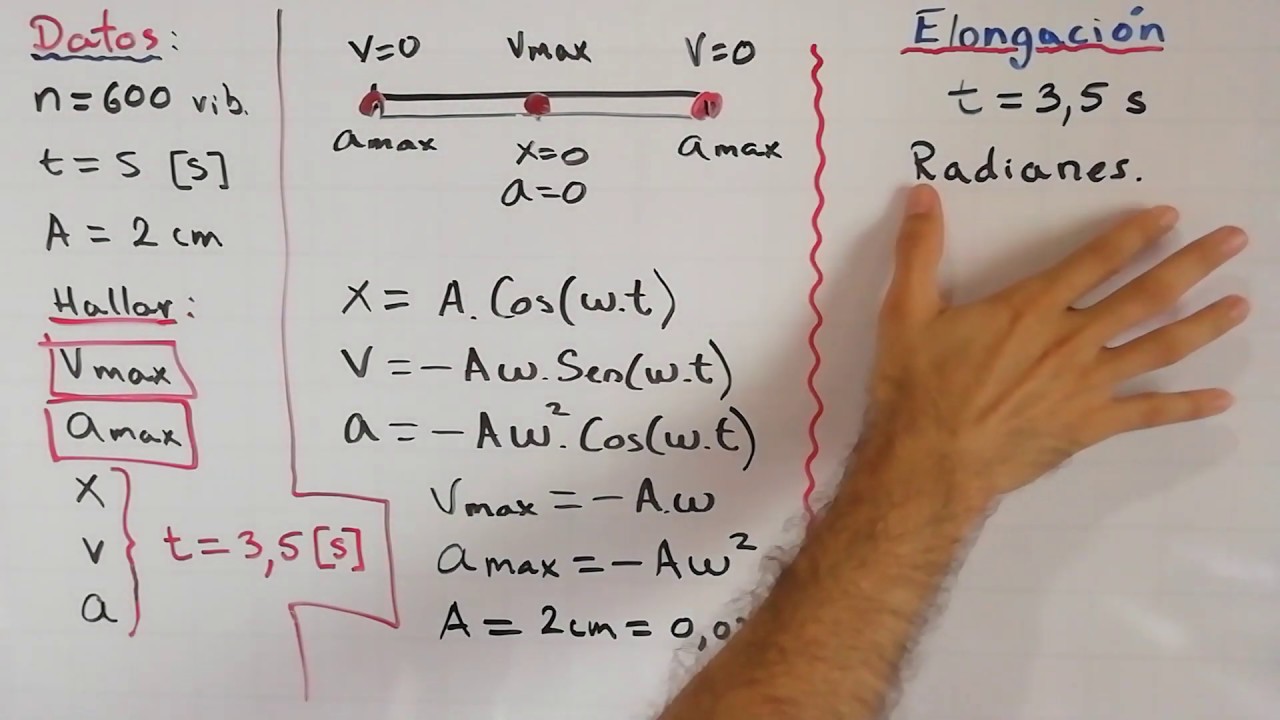 Datos:
n=600 vib.
t= 5 [s]
A = 2 cm
Hallar:
Vmax
amax
x
v
a
t=3,5[s]
V=0 Vmax V=0
amax x=0 amax
a=0
x= A.Cos(w.t)
V=-Aw.Sen(w.t)
a=-Aw².Cos(w.t)
Vmax=-A.w
amax=-Aw²
A= 2cm= 0,0
Elongación
t=3,5 s
Radianes.